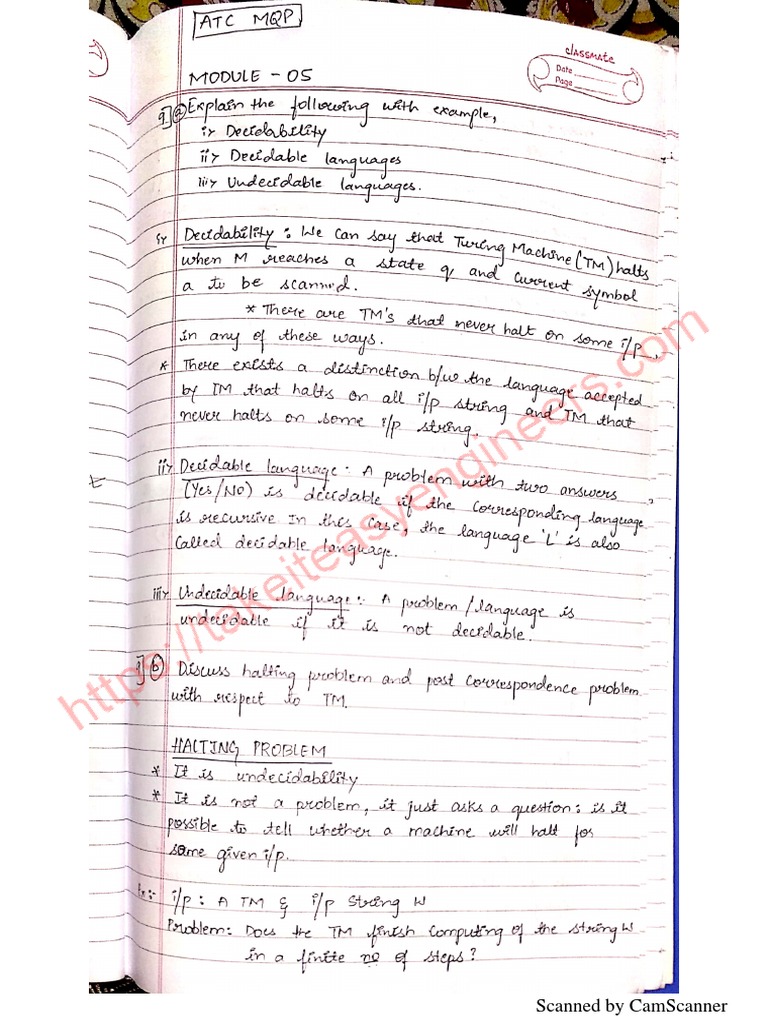 ATC MQP
classmate
Date
Page
MODULE - 05
9] a Explain the following with example,
i> Decidability
ii> Decidable languages
iii> Undecidable languages.
i> Decidability : We can say that Turing Machine (TM) halts
when M reaches a state q and current symbol
a to be scanned.
* There are TM's that never halt on some i/p,
in any of these ways.
* There exists a distinction b/w the language accepted
by TM that halts on all i/p string and TM that
never halts on some i/p string.
ii> Decidable language : A problem with two answers,
(Yes/No) is decidable if the corresponding language
is recursive In this case, the language 'L' is also
called decidable language.
iii> Undecidable language : A problem/language is
undecidable if it is not decidable.
9] b Discuss halting problem and post correspondence problem
with respect to TM.
HALTING PROBLEM
* It is undecidability
* It is not a problem, it just asks a question: is it
possible to tell whether a machine will halt for
some given i/p.
Ex:- i/p : A TM & i/p String W
Problem: Does the TM finish computing of the string W
in a finite no of steps?
https://takeiteasyengineers.com
Scanned by CamScanner